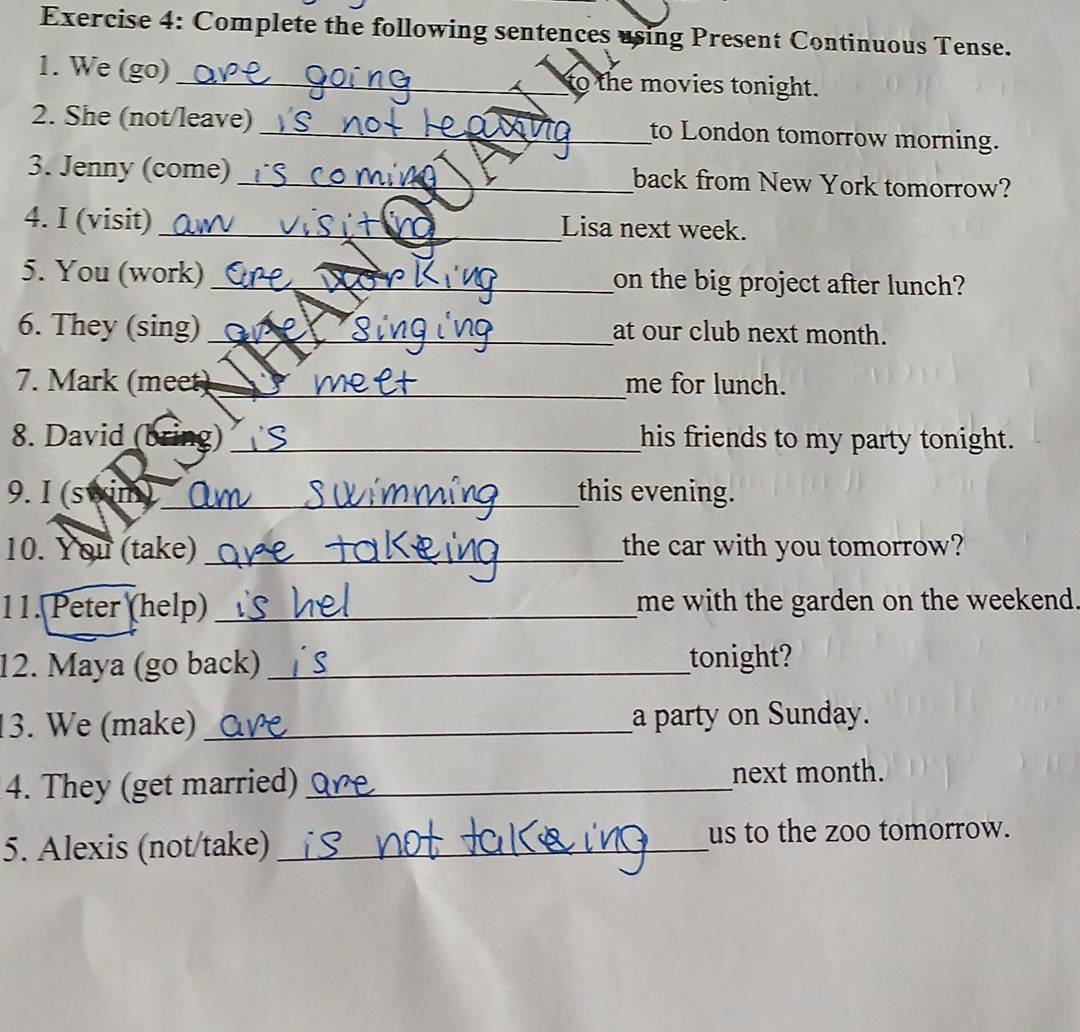 Exercise 4: Complete the following sentences using Present Continuous Tense.
1. We (go) are going to the movies tonight.
2. She (not/leave) is not leaving to London tomorrow morning.
3. Jenny (come) is coming back from New York tomorrow?
4. I (visit) am visiting Lisa next week.
5. You (work) are working on the big project after lunch?
6. They (sing) are singing at our club next month.
7. Mark (meet) is meet me for lunch.
8. David (bring) is his friends to my party tonight.
9. I (swim) am swimming this evening.
10. You (take) are takeing the car with you tomorrow?
11. Peter (help) is hel me with the garden on the weekend.
12. Maya (go back) is tonight?
13. We (make) are a party on Sunday.
4. They (get married) are next month.
5. Alexis (not/take) is not takeing us to the zoo tomorrow.
MRS NHAN QUAN H